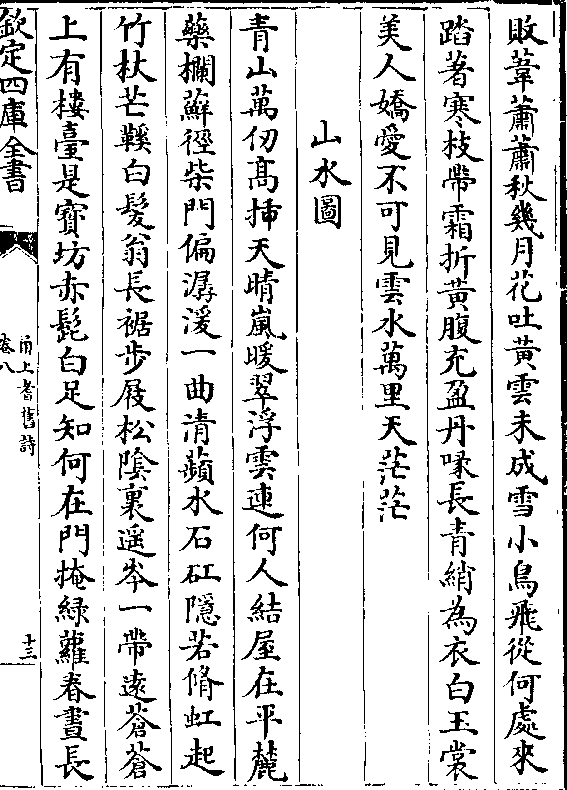 敗葦蕭蕭秋幾月花吐黄雲未成雪小鳥飛從何處來
踏著寒枝帶霜折黄腹充盈丹喙長青綃為衣白玉裳
美人嬌愛不可見雲水萬里天茫茫
山水圖
青山萬仞髙揷天晴嵐暖翠浮雲連何人結屋在平麓
藥欄蘚徑柴門偏潺湲一曲清蘋水石矼隱若脩虹起
竹杖芒鞵白髮翁長裾步屐松陰裏遥岑一帶逺蒼蒼
上有樓臺是寳坊赤髭白足知何在門掩緑蘿春晝長
欽定四庫全書
甬上耆舊詩
卷八
十三